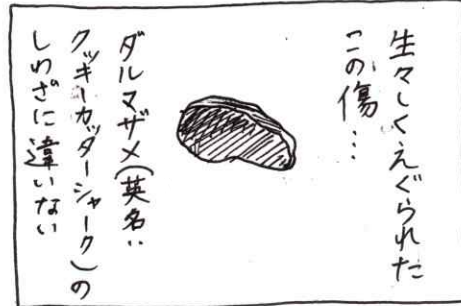 生々しくえぐられた
この傷…
ダルマザメ(英名:
クッキーカッターシャーク)の
しわざに違いない